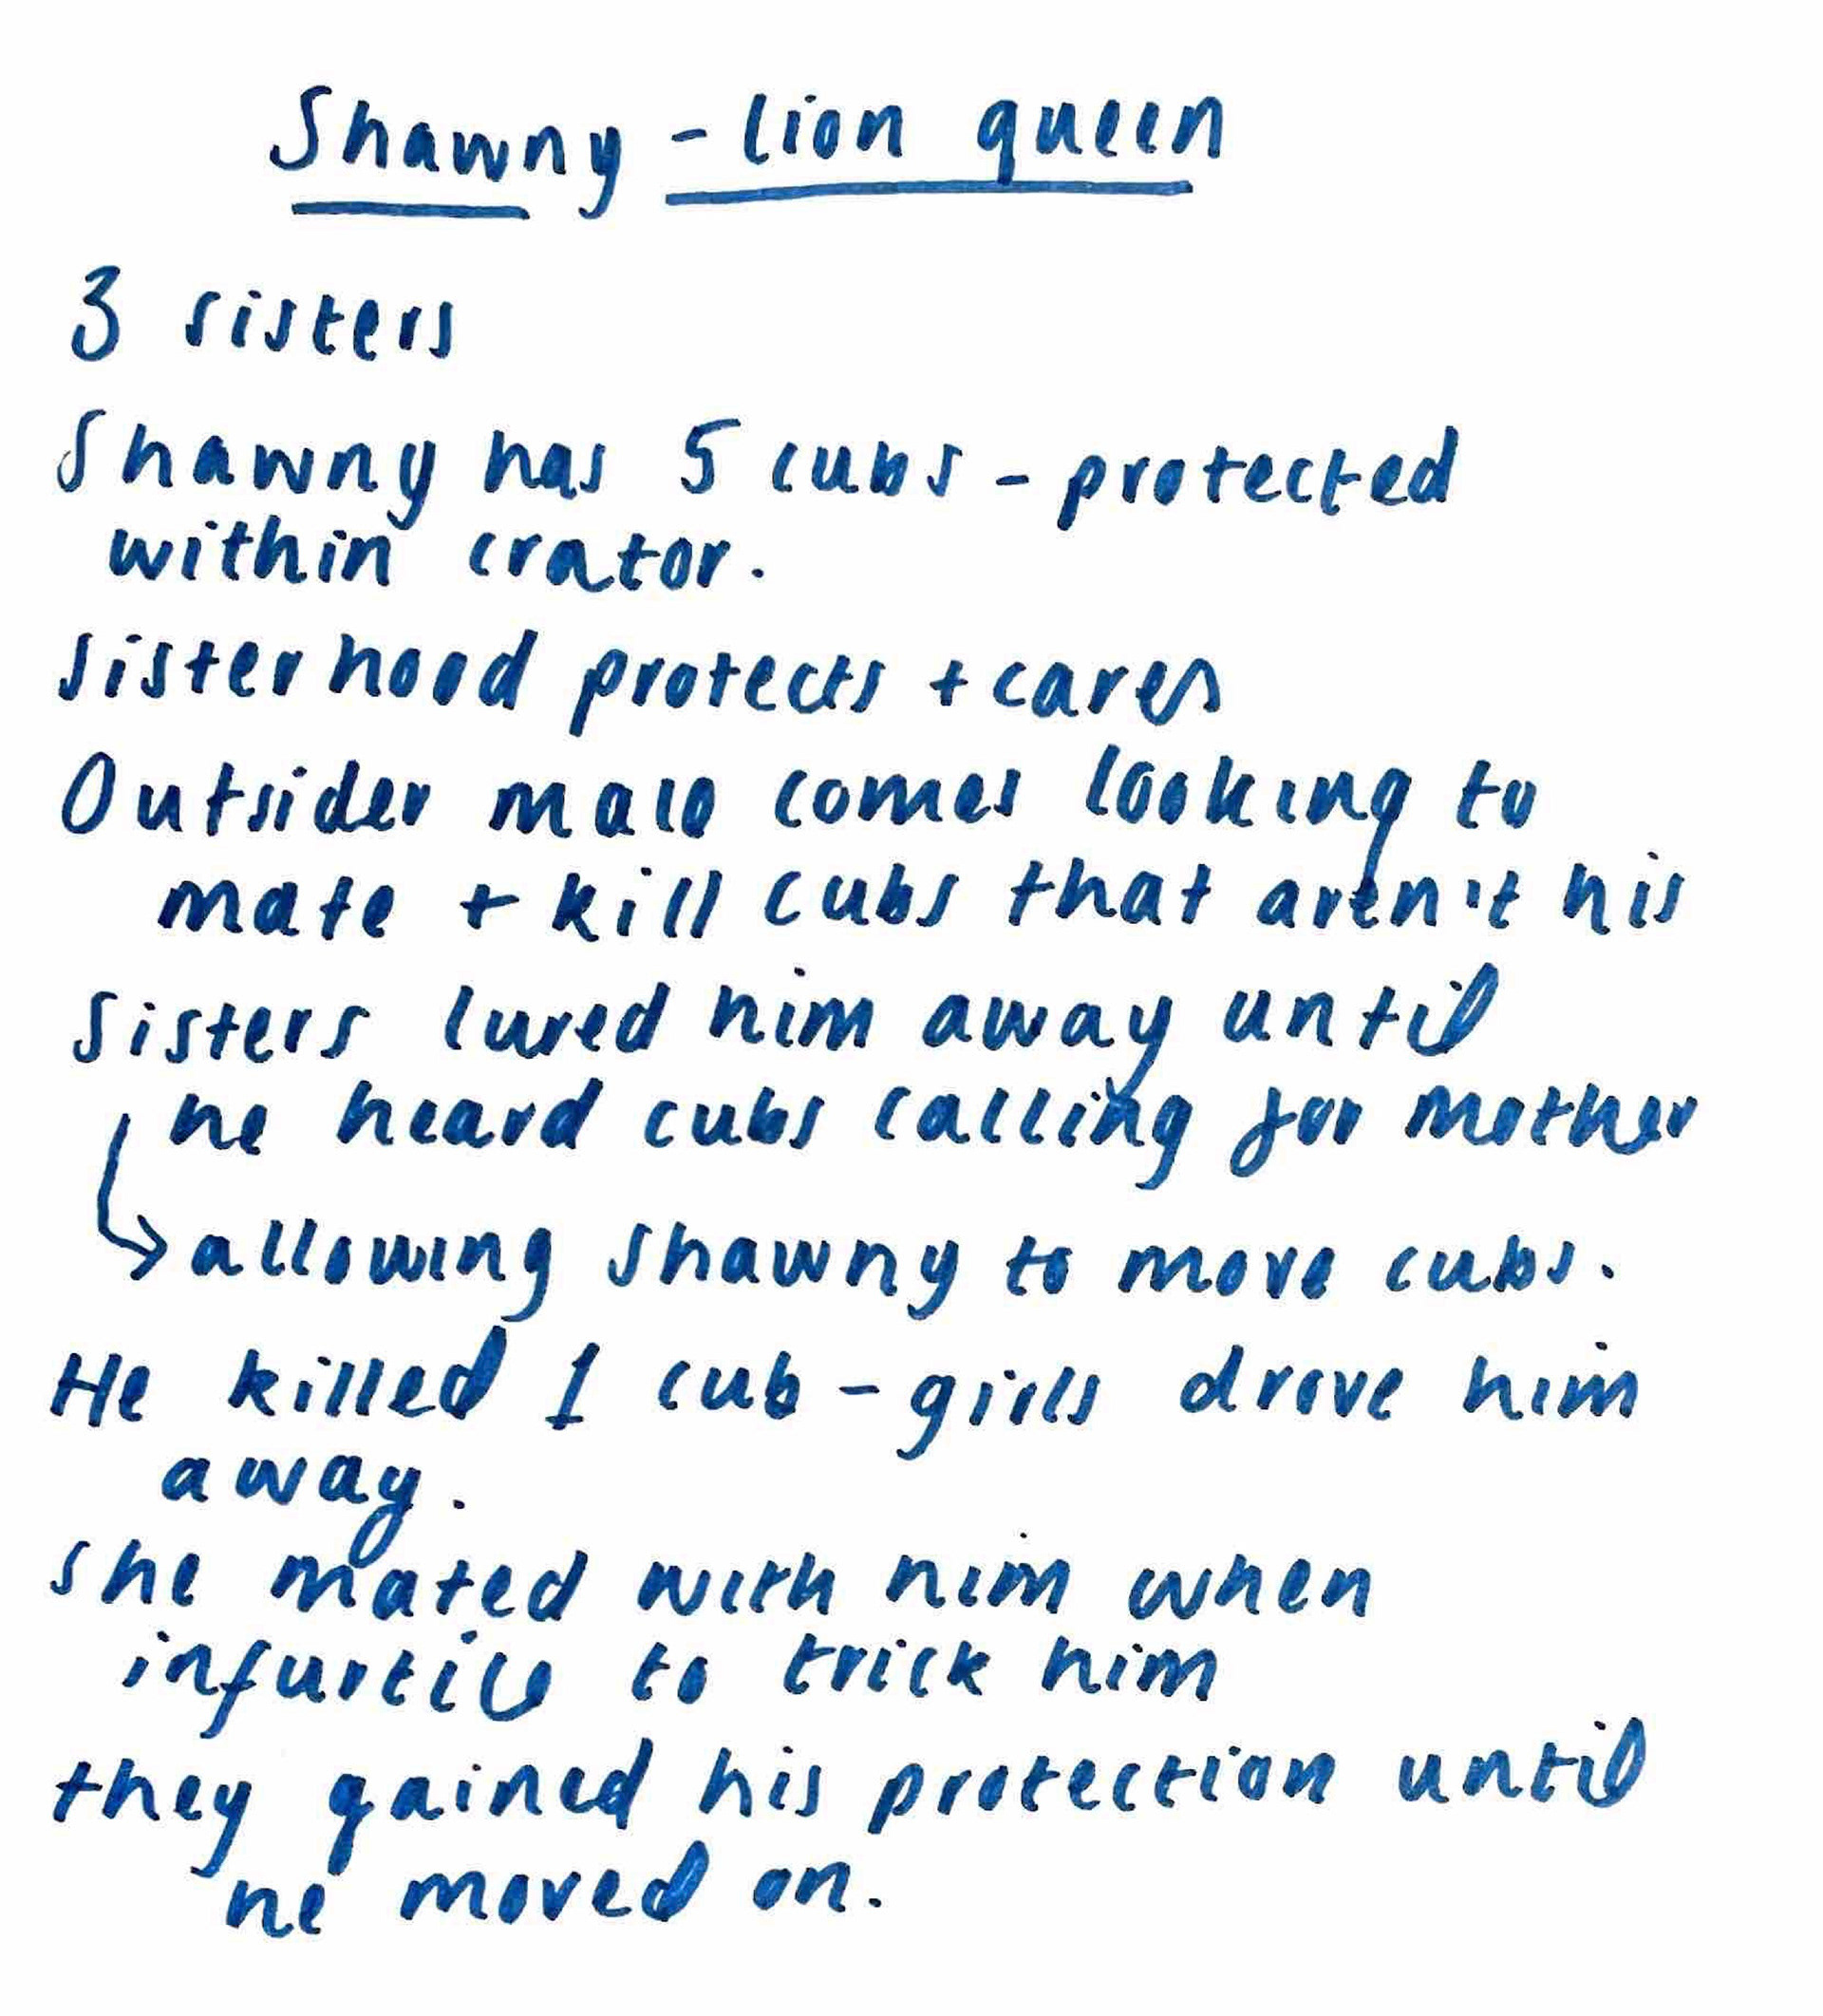 Shawny - lion queen
3 sisters
Shawny has 5 cubs - protected
within crator.
Sisterhood protects + cares
Outsider male comes looking to
mate + kill cubs that aren't his
Sisters lured him away until
he heard cubs calling for mother
↳ allowing Shawny to move cubs.
He killed 1 cub - girls drove him
away.
She mated with him when
infurtile to trick him
they gained his protection until
he moved on.